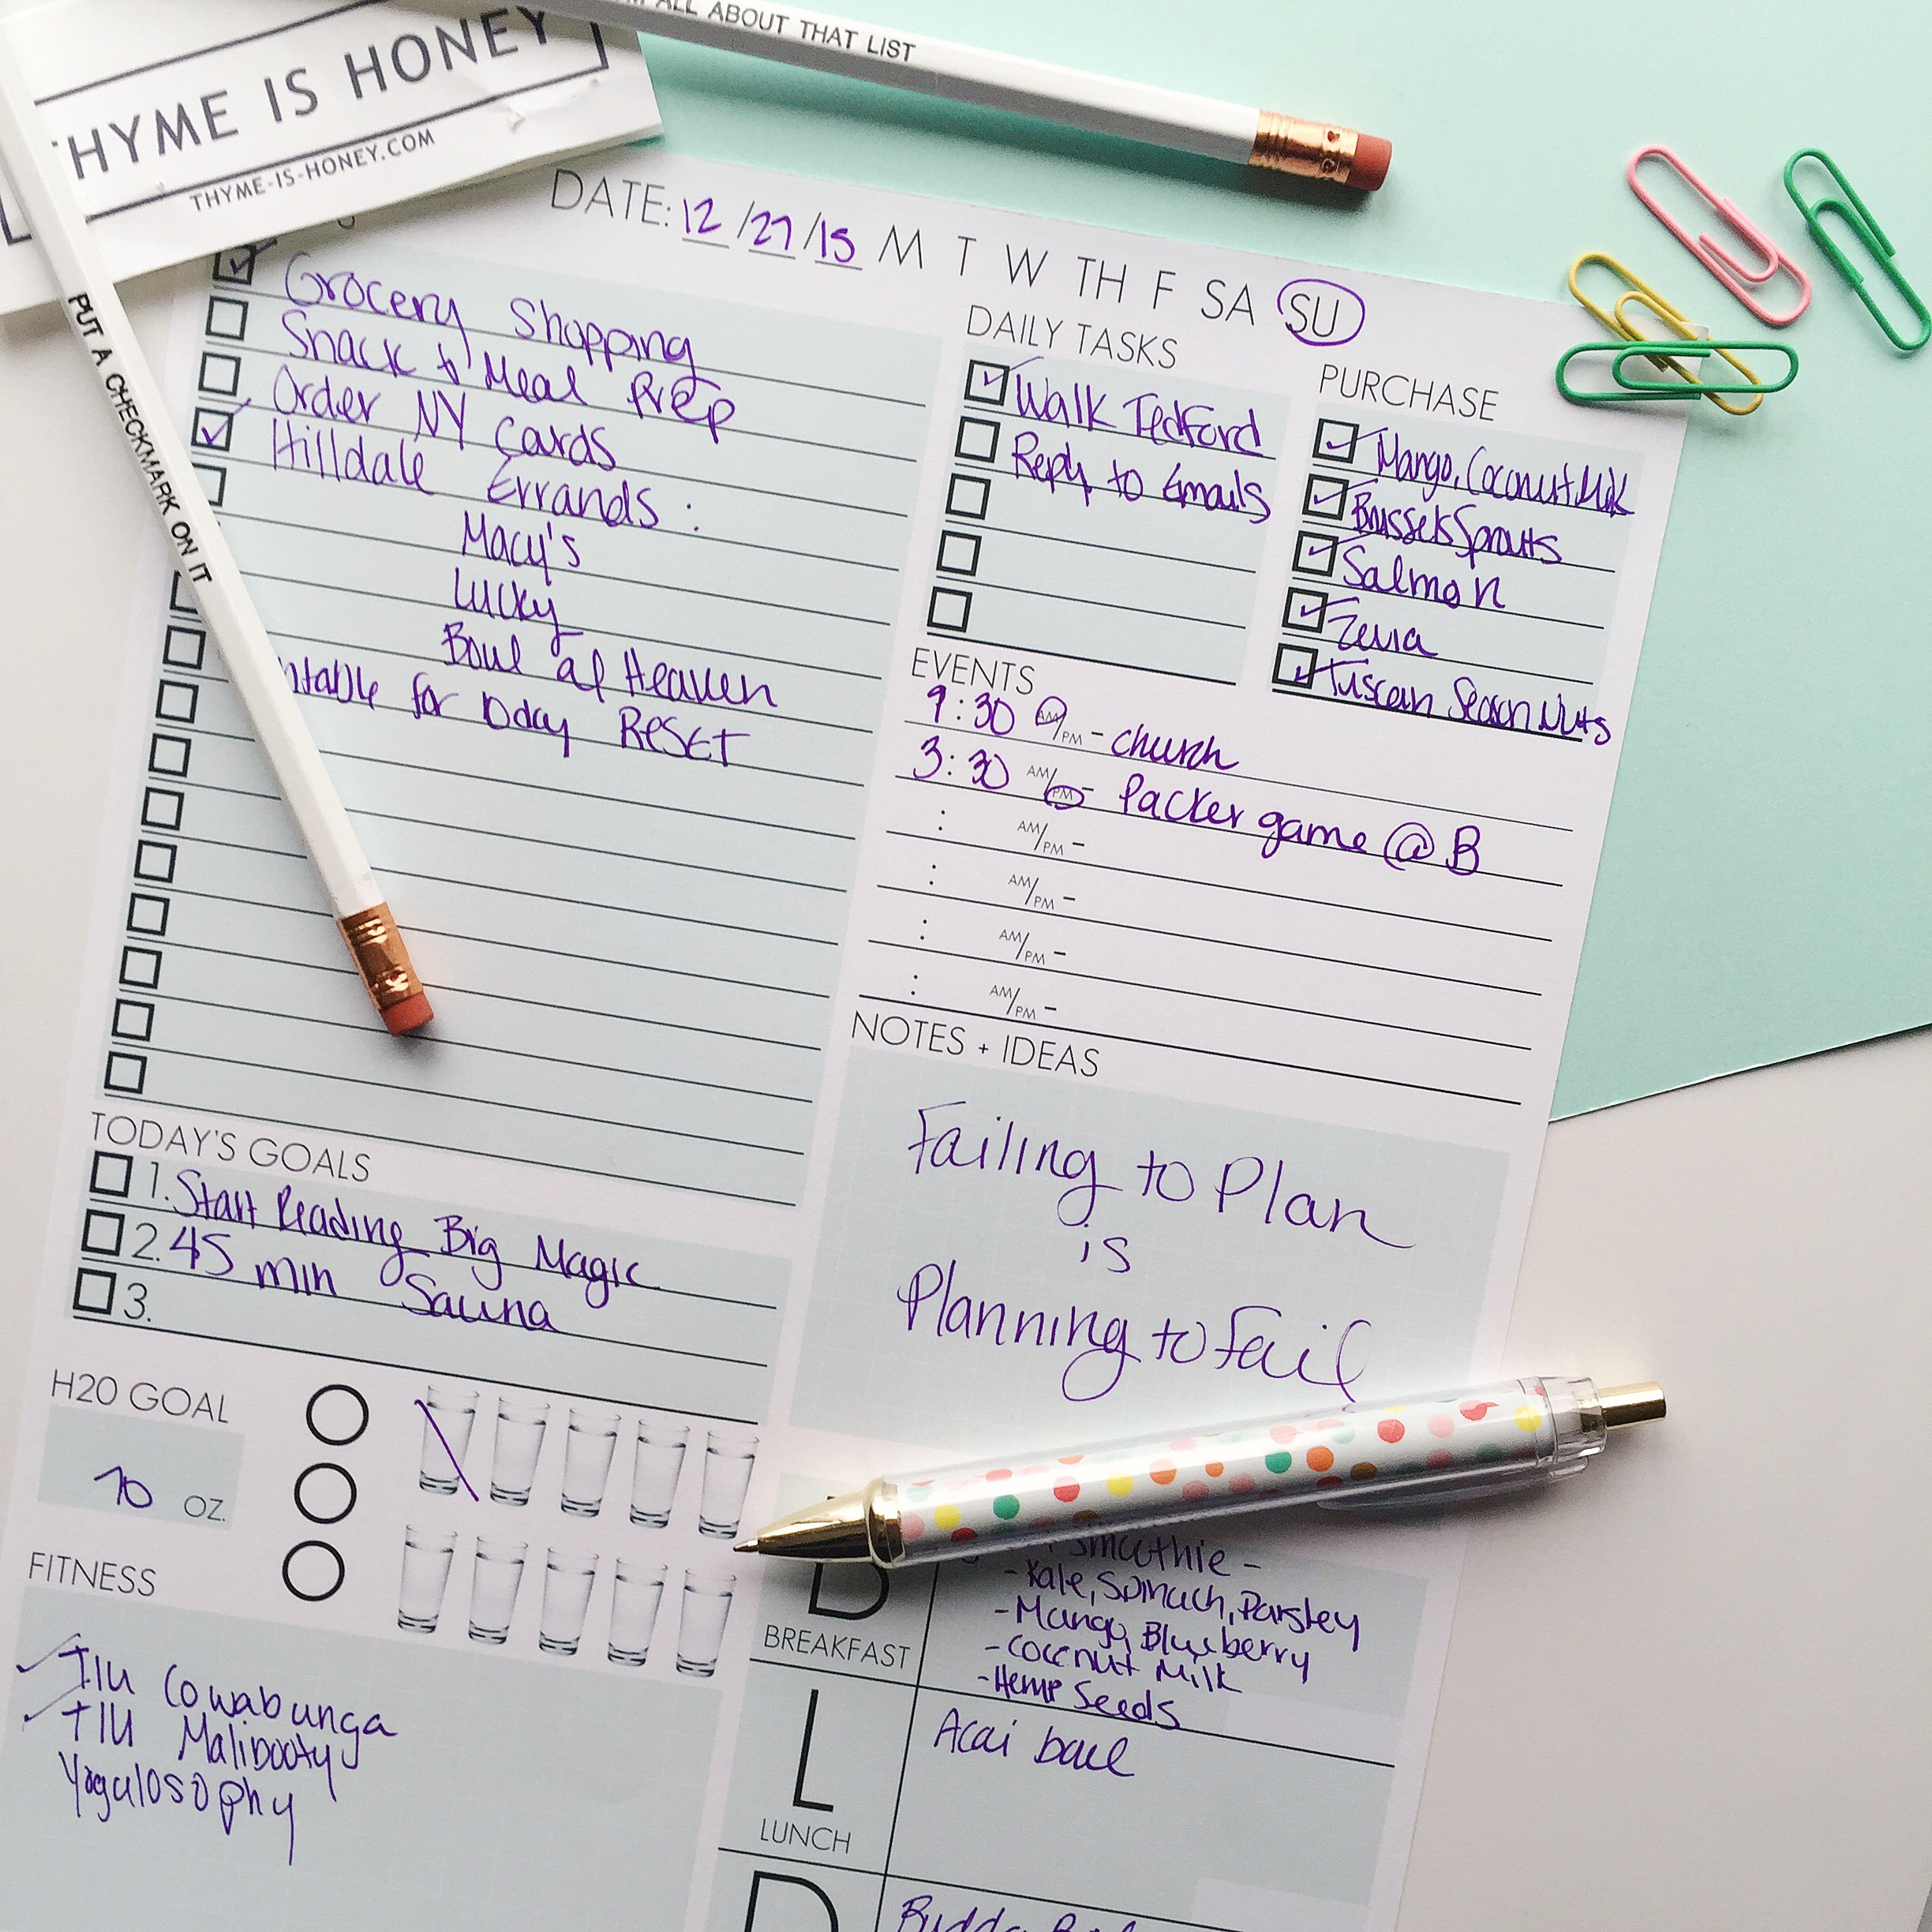 ALL ABOUT THAT LIST
THYME IS HONEY
THYME-IS-HONEY.COM
PUT A CHECKMARK ON IT
DATE: 12/27/15 M T W TH F SA SU
Grocery Shopping
Snack & Meal Prep
Order NY Cards
Hilldale Errands:
Macy's
Lucky
Bowl of Heaven
for 10day RESET
DAILY TASKS
Walk Tedford
Reply to Emails
PURCHASE
Mango, Coconut Milk
Brussels Sprouts
Salmon
Zevia
Tuscan Season Nuts
EVENTS
9:30 AM/PM - church
3:30 AM/PM - Packer game @ B
: AM/PM -
: AM/PM -
: AM/PM -
: AM/PM -
NOTES + IDEAS
Failing to Plan
is
Planning to Fail
TODAY'S GOALS
1. Start Reading Big Magic
2. 45 min Sauna
3.
H20 GOAL
70 OZ.
FITNESS
TIU Cowabunga
TIU Malibooty
Yogalosophy
B
BREAKFAST
Smoothie -
- Kale, Spinach, Parsley
- Mango, Blueberry
- Coconut Milk
- Hemp Seeds
L
LUNCH
Acai bowl
D